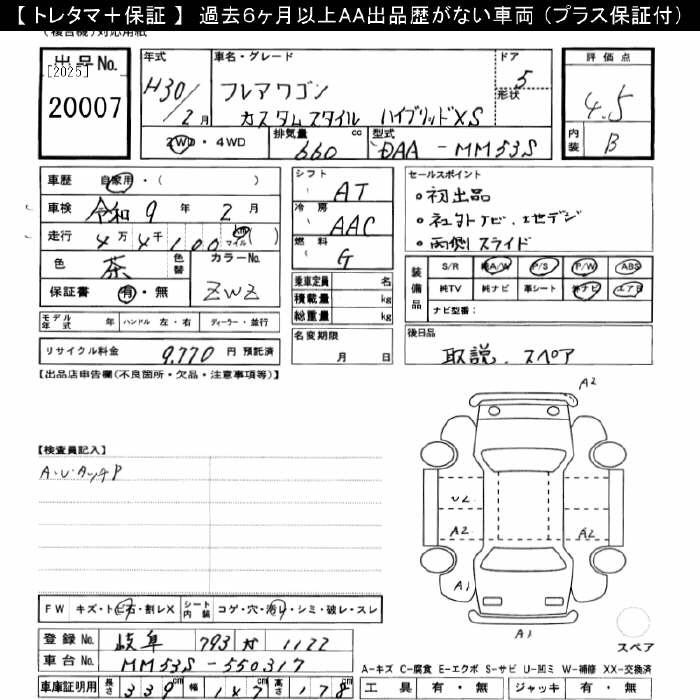 【 トレタマ＋保証 】 過去6ヶ月以上AA出品歴がない車両（プラス保証付）
(複合機)対応用紙
出品No.
[2025]
20007
年式
H30/2月
車名・グレード
フレアワゴン
カスタムスタイル ハイブリッドXS
ドア
5
形状
評価点
4.5
内装
B
2WD・4WD
排気量
660 cc
型式
DAA-MM53S
車歴 自家用・( )
車検 令和 9年 2月
走行 4万4千100 マイル( )
色 茶 色替
カラーNo.
ZWZ
保証書 有・無
シフト
AT
冷房
AAC
燃料
G
乗車定員 名
積載量 kg
総重量 kg
セールスポイント
○初出品
○社外ナビ、地デジ
○両側スライド
装備品
S/R 純A/W P/S P/W ABS
純TV 純ナビ 革シート 社ナビ エアB
ナビ型番：
モデル年式 年 ハンドル 左・右 ディーラー・並行
リサイクル料金 9,770 円 預託済
名変期限
月 日
後日品
取説、スペア
【出品店申告欄(不良箇所・欠品・注意事項等)】
【検査員記入】
A・U・タッチP
A2
U2
A2
A2
A1
A1
スペア
FW キズ・ト石・割レX シート内装 コゲ・穴・汚レ・シミ・破レ・スレ
登録No. 岐阜 793 か 1122
車台No. MM53S-550317
車庫証明用 長さ 339cm 幅 147cm 高さ 178
A-キズ C-腐食 E-エクボ S-サビ U-凹ミ W-補修 XX-交換済
工具 有・無 ジャッキ 有・無